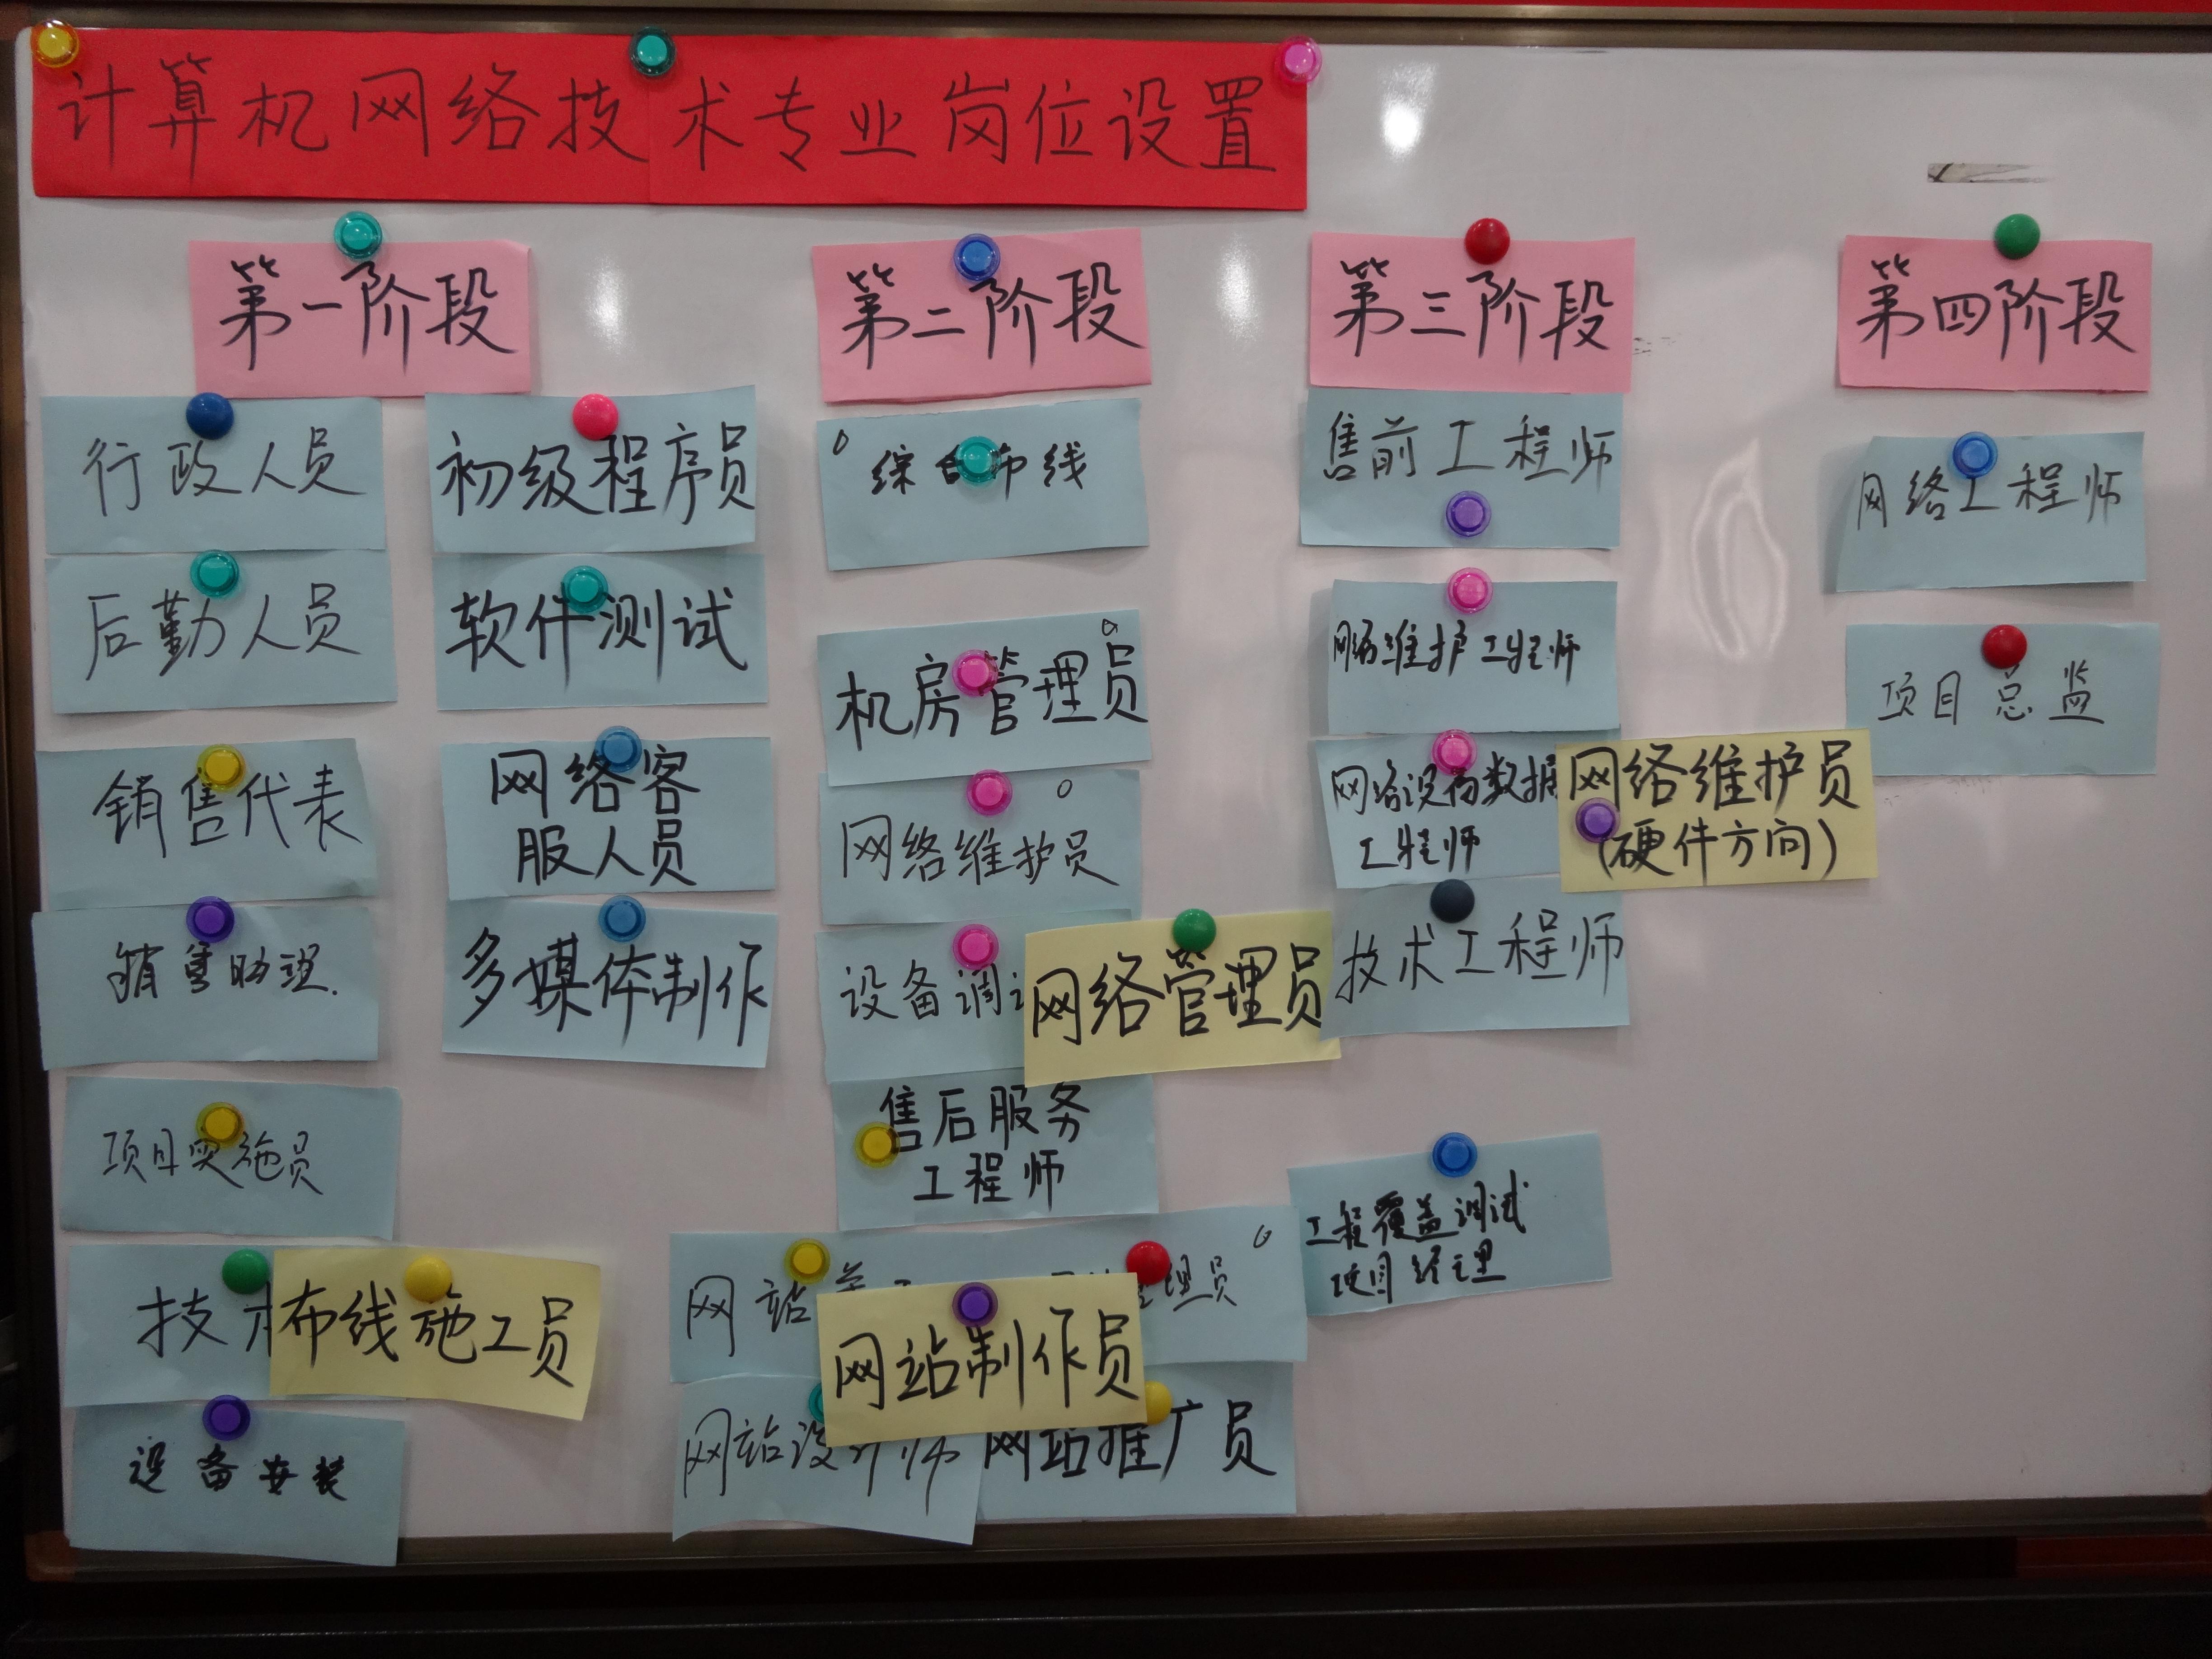 计算机网络技术专业岗位设置
第一阶段
行政人员
后勤人员
销售代表
销售助理.
项目实施员
技术
布线施工员
设备安装
初级程序员
软件测试
网络客
服人员
多媒体制作
第二阶段
综合布线
机房管理员
网络维护员
设备调试
网络管理员
售后服务
工程师
网站
管理员
网站制作员
网站设计师
网站推广员
第三阶段
售前工程师
网络维护工程师
网络设备数据
工程师
网络维护员
(硬件方向)
技术工程师
工程覆盖调试
项目经理
第四阶段
网络工程师
项目总监